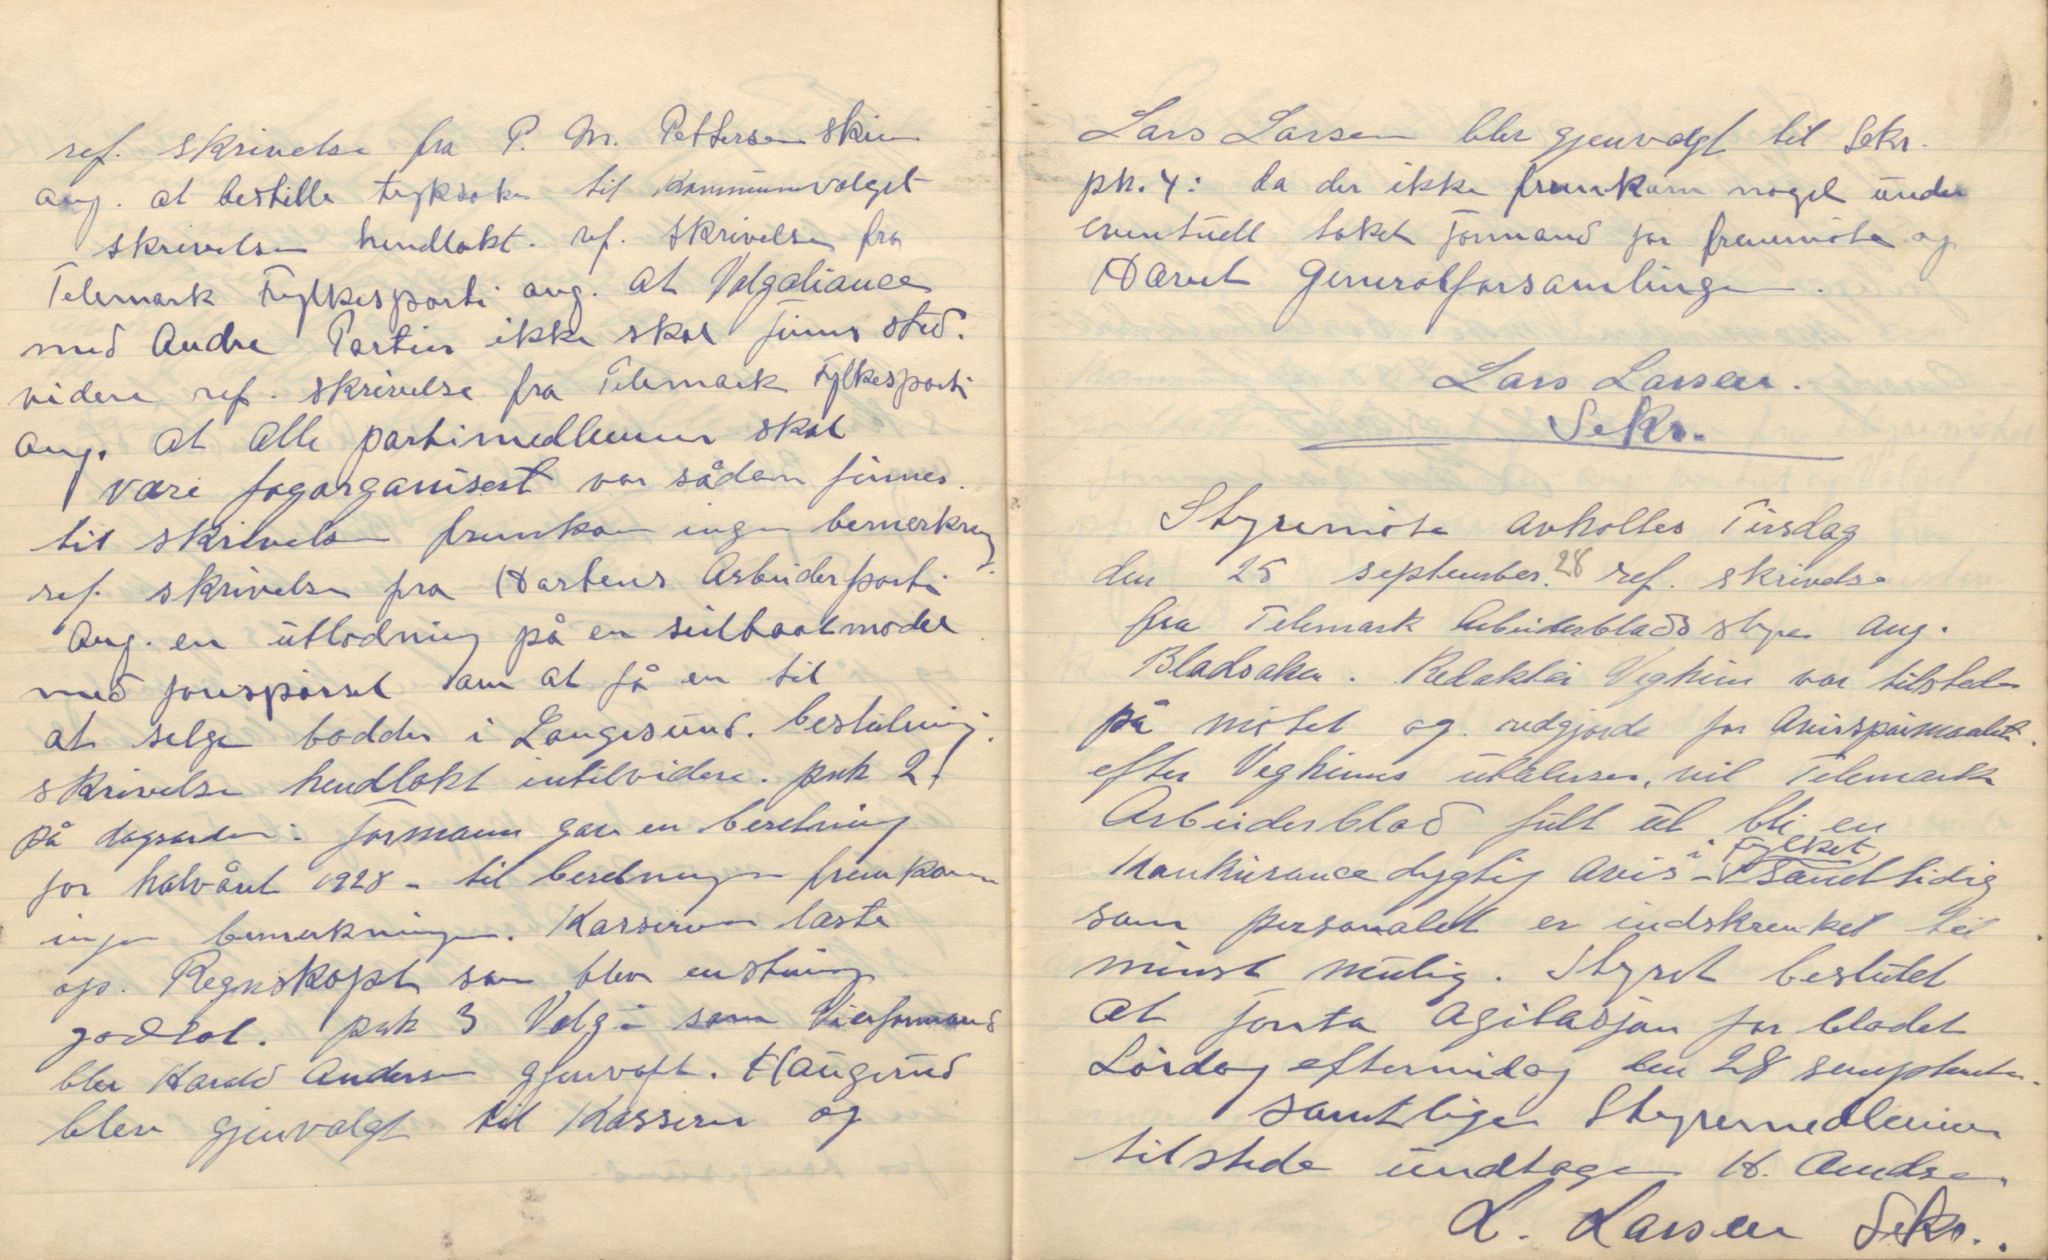 ref. skrivelse fra P. M. Pettersen Skien
ang. at bestille tryksaker til Kommunevalget
skrivelsen henlakt. ref. skrivelse fra
Telemark Fylkesparti ang. at Valgaliancer
med Andre Partier ikke skal finne sted.
videre ref. skrivelse fra Telemark Fylkesparti
ang. at alle partimedlemmer skal
være fagorganisert vor sådan finnes.
til skrivelsen fremkom ingen bemerkning
ref. skrivelse fra Arbeiderparti
ang. en utlodning på en seilbaatmodel
med forespørsel om at få en til
at selge lodder i Langesund. bestilning
skrivelse hendlakt intilvidere. pnk 2.
på dagsorden: Formann gav en beretning
for halvåret 1928 - til beretningen fremkom
ingen bemerkninger. Kasseren læste
op. Regnskapet som blev enstemig
godtat. pnk 3 Valg: som Viseformand
blev Harald Andersen gjenvalgt. Haugerud
blev gjenvalgt til Kasserer og
Lars Larsen blev gjenvalgt til Sekr.
pk. 4: da der ikke fremkom noget under
eventuelt takket formand for fremmøte og
Hævet Generalforsamlingen.
Lars Larsen.
Sekr.
Styremøte avholltes Tirsdag
den 25 september. 28 ref. skrivelse
fra Telemark Arbeiderblads styre ang.
Bladsaken. Redaktør Vegheim var tilstede
på møtet og redgjorde for Avisspørmaalet.
efter Vegheims uttalelser, vil Telemark
Arbeiderblad fult ut bli en
Konkurancedygtig avis i Fylket - Samtidig
som personalet er indskrenket til
minst mulig. Styret besluttet
at foreta Agitasjon for bladet
Lørdag eftermidag den 28 september.
samtlige Styremedlemmer
tilstede undtagen H. Andersen
L. Larsen Sekr.